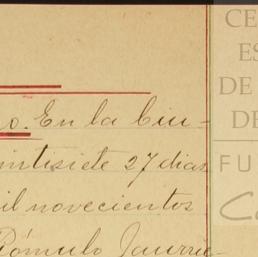 o. En la Ciu-
intisiete 27 dias
il novecientos
Rómulo Jaurrie-
CE
ES
DE
DE
FU
C